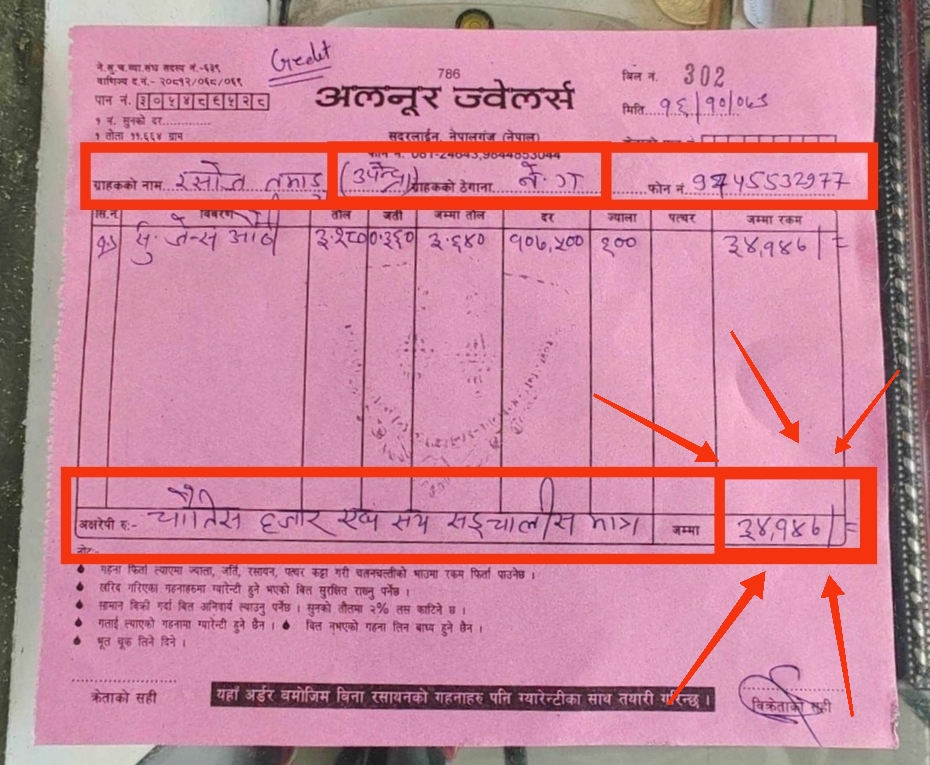 ने.सु.च.व्या.संघ सदस्य नं.-६३९
Credit
786
बिल नं. 302
वाणिज्य द.नं.- २०८१२/०६८/०६९
अलनूर ज्वेलर्स
पान नं. ३०५४८६५२८
मिति. १६/१०/०८१
१ नं. सुनको दर
१ तोला ११.६६४ ग्राम
सदरलाईन, नेपालगंज (नेपाल)
फोन नं. 081-24643,9844853044
ग्राहकको नाम (उपेन्द्र) ग्राहकको ठेगाना ने. ग फोन नं. 9745532977
सि.नं. विवरण तौल जर्ती जम्मा तौल दर ज्याला पत्थर जम्मा रकम
३.२८० ०.३६० ३.६४० १०७,५०० १०० ३४,१४७/=
अक्षरेपी रु:- चौतिस हजार एक सय सड्चालीस मात्र जम्मा ३४,१४७/=
नोट:-
गहना फिर्ता ल्याएमा ज्याला, जर्ति, रसायन, पत्थर कट्टा गरी चलनचल्तीको भाउमा रकम फिर्ता पाउनेछ ।
खरिद गरिएका गहनाहरुमा ग्यारेन्टी हुने भएको बिल सुरक्षित राख्नु पर्नेछ ।
सामान बिक्री गर्दा बिल अनिवार्य ल्याउनु पर्नेछ । सुनको तौलमा २% लस काटिने छ ।
गलाई ल्याएको गहनामा ग्यारेन्टी हुने छैन । बिल नभएको गहना लिन बाध्य हुने छैन ।
भूल चूक लिने दिने ।
क्रेताको सही
यहाँ अर्डर बमोजिम बिना रसायनको गहनाहरु पनि ग्यारेन्टीका साथ तयारी गरिन्छ ।
विक्रेताको सही